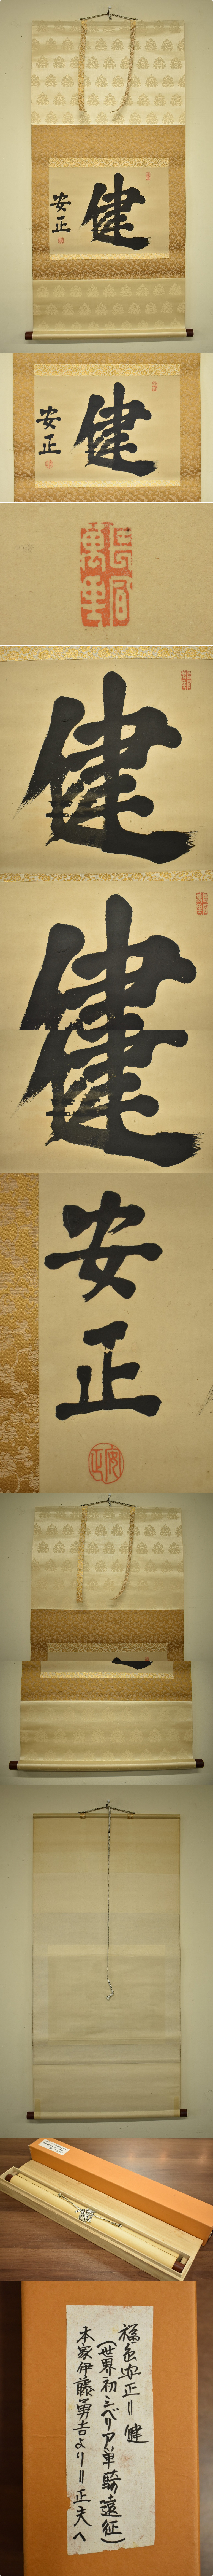 健
安正
健
安正
長風萬里
健
健
健
安正
安正
福島安正=健
(世界初シベリア単騎遠征)
本家伊藤勇吉より=正夫へ